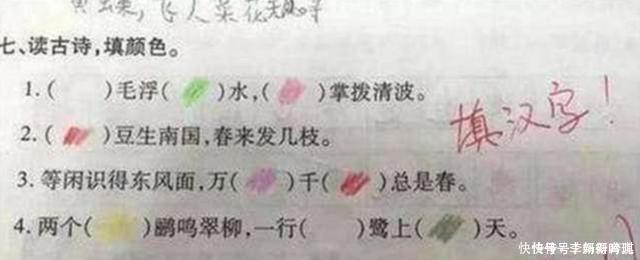 飞人菜花无
七、读古诗,填颜色。
1.( )毛浮( )水,( )掌拨清波。
2.( )豆生南国,春来发几枝。
填汉字!
3.等闲识得东风面,万( )千( )总是春。
4.两个( )鹂鸣翠柳,一行( )鹭上( )天。